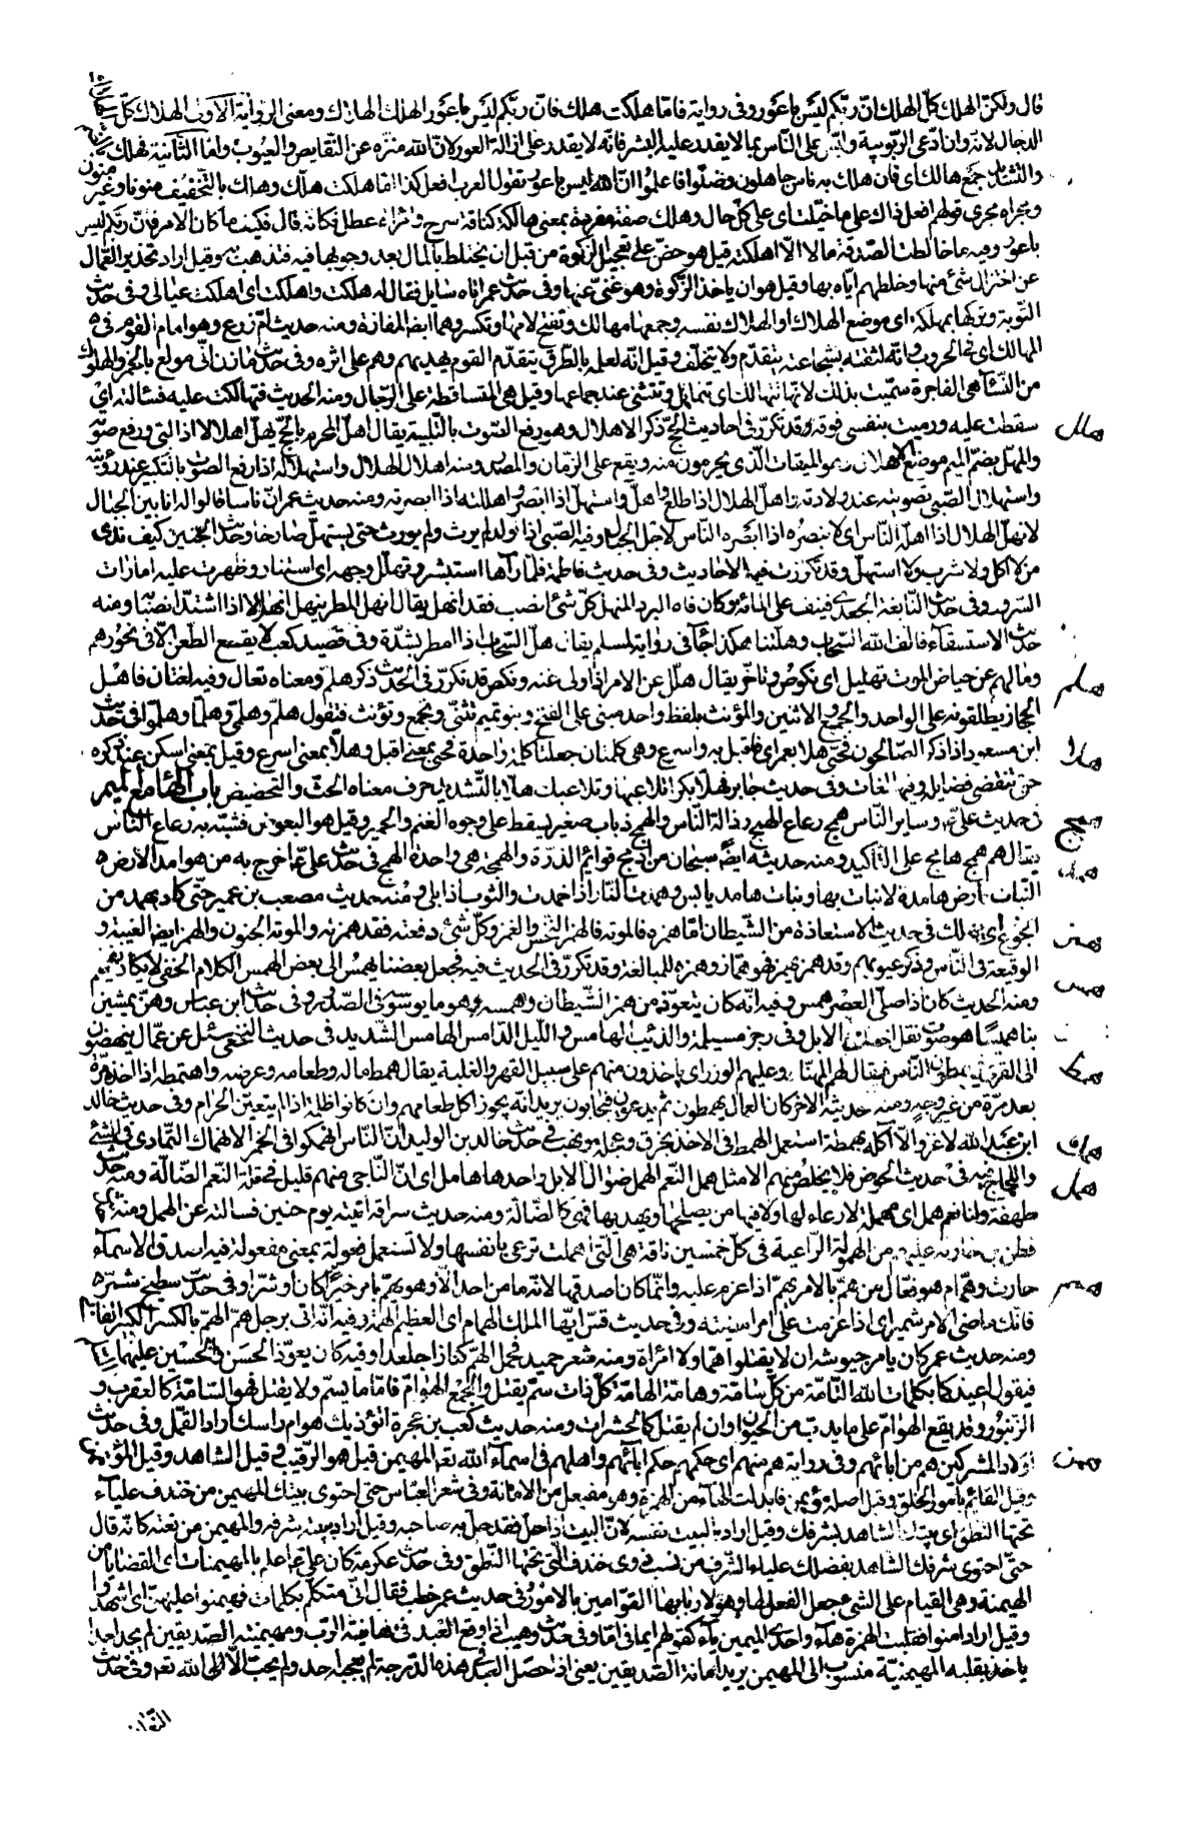 قال ولكن الهلك كل الهلك ان ربكم ليس باعور وفى رواية فاما هلكت هلك فان ربكم ليس باعور الهلك الهلاك ومعنى الرواية الاولى الهلاك كل
الدجال لانه وان ادعى الربوبية ولبس على الناس بما لا يقدر عليه البشر فانه لا يقدر على ازالة العور لان الله منزه عن النقايص والعيوب واما الثانية فهلك
والتشديد جمع هالك اى فان هلك به ناس جاهلون وضلوا فاعلموا ان الله ليس باعور تقول العرب افعل كذا اما هلكت هلك وهلك بالتخفيف منونا وغير منون
ومجراه مجرى قولهم افعل ذاك على ما خيلت اى على كل حال وهلك صفة مفردة بمعنى هالكة كناقة سرح وامراة عطل فكانه قال فكيف ما كان الامر فان ربكم ليس
باعور وفيه ما خالطت الصدقة مالا الا اهلكته قيل هو حض على تعجيل الزكوة من قبل ان يختلط بالمال بعد وجوبها فيه فتذهب به وقيل اراد تحذير العمال
عن اختزال شئ منها وخلطهم اياه بها وقيل هو ان ياخذ الزكوة وهو غنى عنها وفى حديث عمر اتاه سايل فقال له هلكت واهلكت اى اهلكت عيالى وفى حديث
التوبة وتركها بمهلكة اى موضع الهلاك او الهلاك نفسه وجمعها مهالك وتفتح لامها وتكسر وهما ايضا المفازة ومنه حديث ام زرع وهو امام القوم فى
المهالك اى فى الحروب وانه لثقته بشجاعته يتقدم ولا يتخلف وقيل انه لعلمه بالطرق يتقدم القوم يهديهم وهم على اثره وفى حديث مازن انى مولع بالخمر والهلوك
من النساء هى الفاجرة سميت بذلك لانها تتهالك اى تتمايل وتتثنى عند جماعها وقيل هى المتساقطة على الرجال ومنه الحديث فتهالكت عليه فسألته اى
هلل سقطت عليه ورميت بنفسى فوقه وقد تكرر فى احاديث الحج ذكر الاهلال وهو رفع الصوت بالتلبية يقال اهل المحرم بالحج يهل اهلالا اذا لبى ورفع صوته
والمهل بضم الميم موضع الاهلال وهو الميقات الذى يحرمون منه ويقع على الزمان والمصدر ومنه اهلال الهلال واستهلاله اذا رفع الصوت بالتكبير عند رؤيته
واستهلال الصبى تصويته عند ولادته واهل الهلال اذا طلع واهل واستهل اذا ابصر واهللته اذا ابصرته ومنه حديث عمر ان ناسا قالوا له انا بين الجبال
لا نهل الهلال اذا اهله الناس اى لا نبصره اذا ابصره الناس لاجل الجبال وفيه الصبى اذا ولد لم يرث ولم يورث حتى يستهل صارخا وحديث الجنين كيف ندى
من لا اكل ولا شرب ولا استهل وقد تكررت فيهما الاحاديث وفى حديث فاطمة فلما رآها استبشر وتهلل وجهه اى استنار وظهرت عليه امارات
السرور وفى حديث النابغة الجعدى فنيف على المائة وكان فاه البرد المنهل كل شئ انصب فقد انهل يقال انهل المطر ينهل انهلالا اذا اشتد انصبابه ومنه
حديث الاستسقاء فالف الله السحاب وهلتنا هكذا جاء فى رواية لمسلم يقال هل السحاب اذا امطر بشدة وفى قصيد كعب لا يقع الطعن الا فى نحورهم
هلم وما لهم عن حياض الموت تهليل اى نكوص وتأخر يقال هلل عن الامر اذا ولى عنه ونكص قد تكرر فى الحديث ذكر هلم ومعناه تعال وفيه لغتان فاهل
الحجاز يطلقونه على الواحد والجميع والاثنين والمؤنث بلفظ واحد مبنى على الفتح وبنو تميم تثنى وتجمع وتؤنث فتقول هلم وهلمى وهلما وهلموا فى حديث
هلا ابن مسعود اذا ذكر الصالحون فحى هلا بعمر اى فاقبل به واسرع وهى كلمتان جعلتا كلمة واحدة فحى بمعنى اقبل وهلا بمعنى اسرع وقيل بمعنى اسكن عند ذكره
حتى تنقضى فضايله وفيها لغات وفى حديث جابر فهلا بكرا تلاعبها وتلاعبك هلا بالتشديد حرف معناه الحث والتحضيض باب الهاء مع الميم
همج فى حديث على وساير الناس همج رعاع الهمج رذالة الناس والهمج ذباب صغير يسقط على وجوه الغنم والحمير وقيل هو البعوض فشبه به رعاع الناس
همد يقال هم همج هامج على التأكيد ومنه حديثه ايضا سبحان من ادمج قوائم الذرة والهمجة هى واحدة الهمج فى حديث على اخرج به من هوامد الارض
النبات ارض هامدة لا نبات بها ونبات هامد يابس وهمدت النار اذا خمدت والثوب اذا بلى ومنه حديث مصعب بن عمير حتى كاد يهمد من
همز الجوع اى يهلك فى حديث الاستعاذة من الشيطان اما همزه فالموتة فالهمز النخس والغمز وكل شئ دفعته فقد همزته والموتة الجنون والهمز ايضا الغيبة و
الوقيعة فى الناس وذكر عيوبهم وقد همز يهمز فهو هماز وهمزة للمبالغة وقد تكرر فى الحديث فيه فجعل بعضنا يهمس الى بعض الهمس الكلام الخفى لا يكاد يفهم
همس ومنه الحديث كان اذا صلى العصر همس وفيه انه كان يتعوذ من همز الشيطان وهمسه وهو ما يوسوسه فى الصدور وفى حديث ابن عباس وهن يمشين
بنا هميسا هو صوت نقل اخفاف الابل وفى رجز مسيلمة والذئب الهامس والليل الدامس الهامس الشديد فى حديث النخعى سئل عن عمال ينهضون
همط الى القرى فيهمطون الناس فقال لهم المهنأ وعليهم الوزر اى ياخذون منهم على سبيل القهر والغلبة يقال همط ماله وطعامه وعرضه واهتمطه اذا اخذه مرة
بعد مرة من غير وجه ومنه حديثه الاخر كان العمال يهمطون ثم يدعون فيجابون يريد انه يجوز اكل طعامهم وان كانوا ظلمة اذا لم يتعين الحرام وفى حديث خالد
همك ابن عبد الله لا غرو الا اكلة بهمطة استعمل الهمط فى الاخذ بخرق وعجلة ونهب فى حديث خالد بن الوليد ان الناس انهمكوا فى الخمر الانهماك التمادى فى الشئ
همل واللجاج فيه فى حديث الحوض فلا يخلص منهم الا مثل همل النعم الهمل ضوال الابل واحدها هامل اى ان الناجى منهم قليل فى قلة النعم الضالة ومنه حديث
طهفة ولنا نعم همل اى مهملة لا رعاء لها ولا فيها من يصلحها ويهديها فهى كالضالة ومنه حديث سراقة اتيته يوم حنين فسالته عن الهمل ومنه
فى الهمولة الراعية فى كل خمسين ناقة هى التى اهملت ترعى بانفسها ولا تستعمل فعولة بمعنى مفعولة فيه اصدق الاسماء
همم حارث وهمام هو فعال من هم بالامر يهم اذا عزم عليه وانما كان اصدقها لانه ما من احد الا وهو يهم بامر خيرا كان او شرا وفى حديث سطيح شمر
فانك ماضى الامر شمير اى اذا عزمت على امر امضيته وفى حديث قس ايها الملك الهمام اى العظيم الهمة وفيه انه اتى برجل هم الهم بالكسر الكبير الفانى
ومنه حديث عمر كان يامر جيوشه ان لا يقتلوا هما ولا امراة ومنه شعر حميد فحمل الهم كنازا جلعدا وفيه كان يعوذ الحسن والحسين عليهما
فيقول اعيذكما بكلمات الله التامة من كل سامة وهامة الهامة كل ذات سم يقتل والجمع الهوام فاما ما يسم ولا يقتل فهو السامة كالعقرب و
الزنبور وقد يقع الهوام على ما يدب من الحيوان وان لم يقتل كالحشرات ومنه حديث كعب بن عجرة اتؤذيك هوام راسك اراد القمل وفى حديث
همن اولاد المشركين هم من ابائهم وفى رواية هم منهم اى حكمهم حكم ابائهم واهلهم فى اسماء الله تعالى المهيمن قيل هو الرقيب وقيل الشاهد وقيل المؤتمن
وقيل القائم بامور الخلق وقيل اصله مؤيمن فابدلت الهاء من الهمزة وهو مفيعل من الامانة وفى شعر العباس حتى احتوى بيتك المهيمن من خندف علياء
تحتها النطق اى بيتك الشاهد بشرفك وقيل اراد بالبيت نفسه لان البيت اذا حل فقد حل به صاحبه وقيل اراد ببيته شرفه والمهيمن من نعته كانه قال
حتى احتوى شرفك الشاهد بفضلك علياء الشرف من نسب ذوى خندف التى تحتها النطق وفى حديث عكرمة كان على اعلم بالمهيمنات اى القضايا من
الهيمنة وهى القيام على الشئ جعل الفعل لها وهو لاربابها القوامين بالامور فى حديث عمر خطب فقال انى متكلم بكلمات فهيمنوا عليهن اى اشهدوا
وقيل اراد امنوا فقلبت الهمزة هاء واحدى الميمين ياء كقولهم ايما فى اما وفى حديث وهيب اذا وقع العبد فى هانية الرب ومهيمنية الصديقين لم يجد احدا
ياخذ بقلبه المهيمنية منسوب الى المهيمن يريد امانة الصديقين يعنى اذا حصل العبد فى هذه الدرجة لم يعجبه احد ولم يحب الا الله تعالى وفى حديث